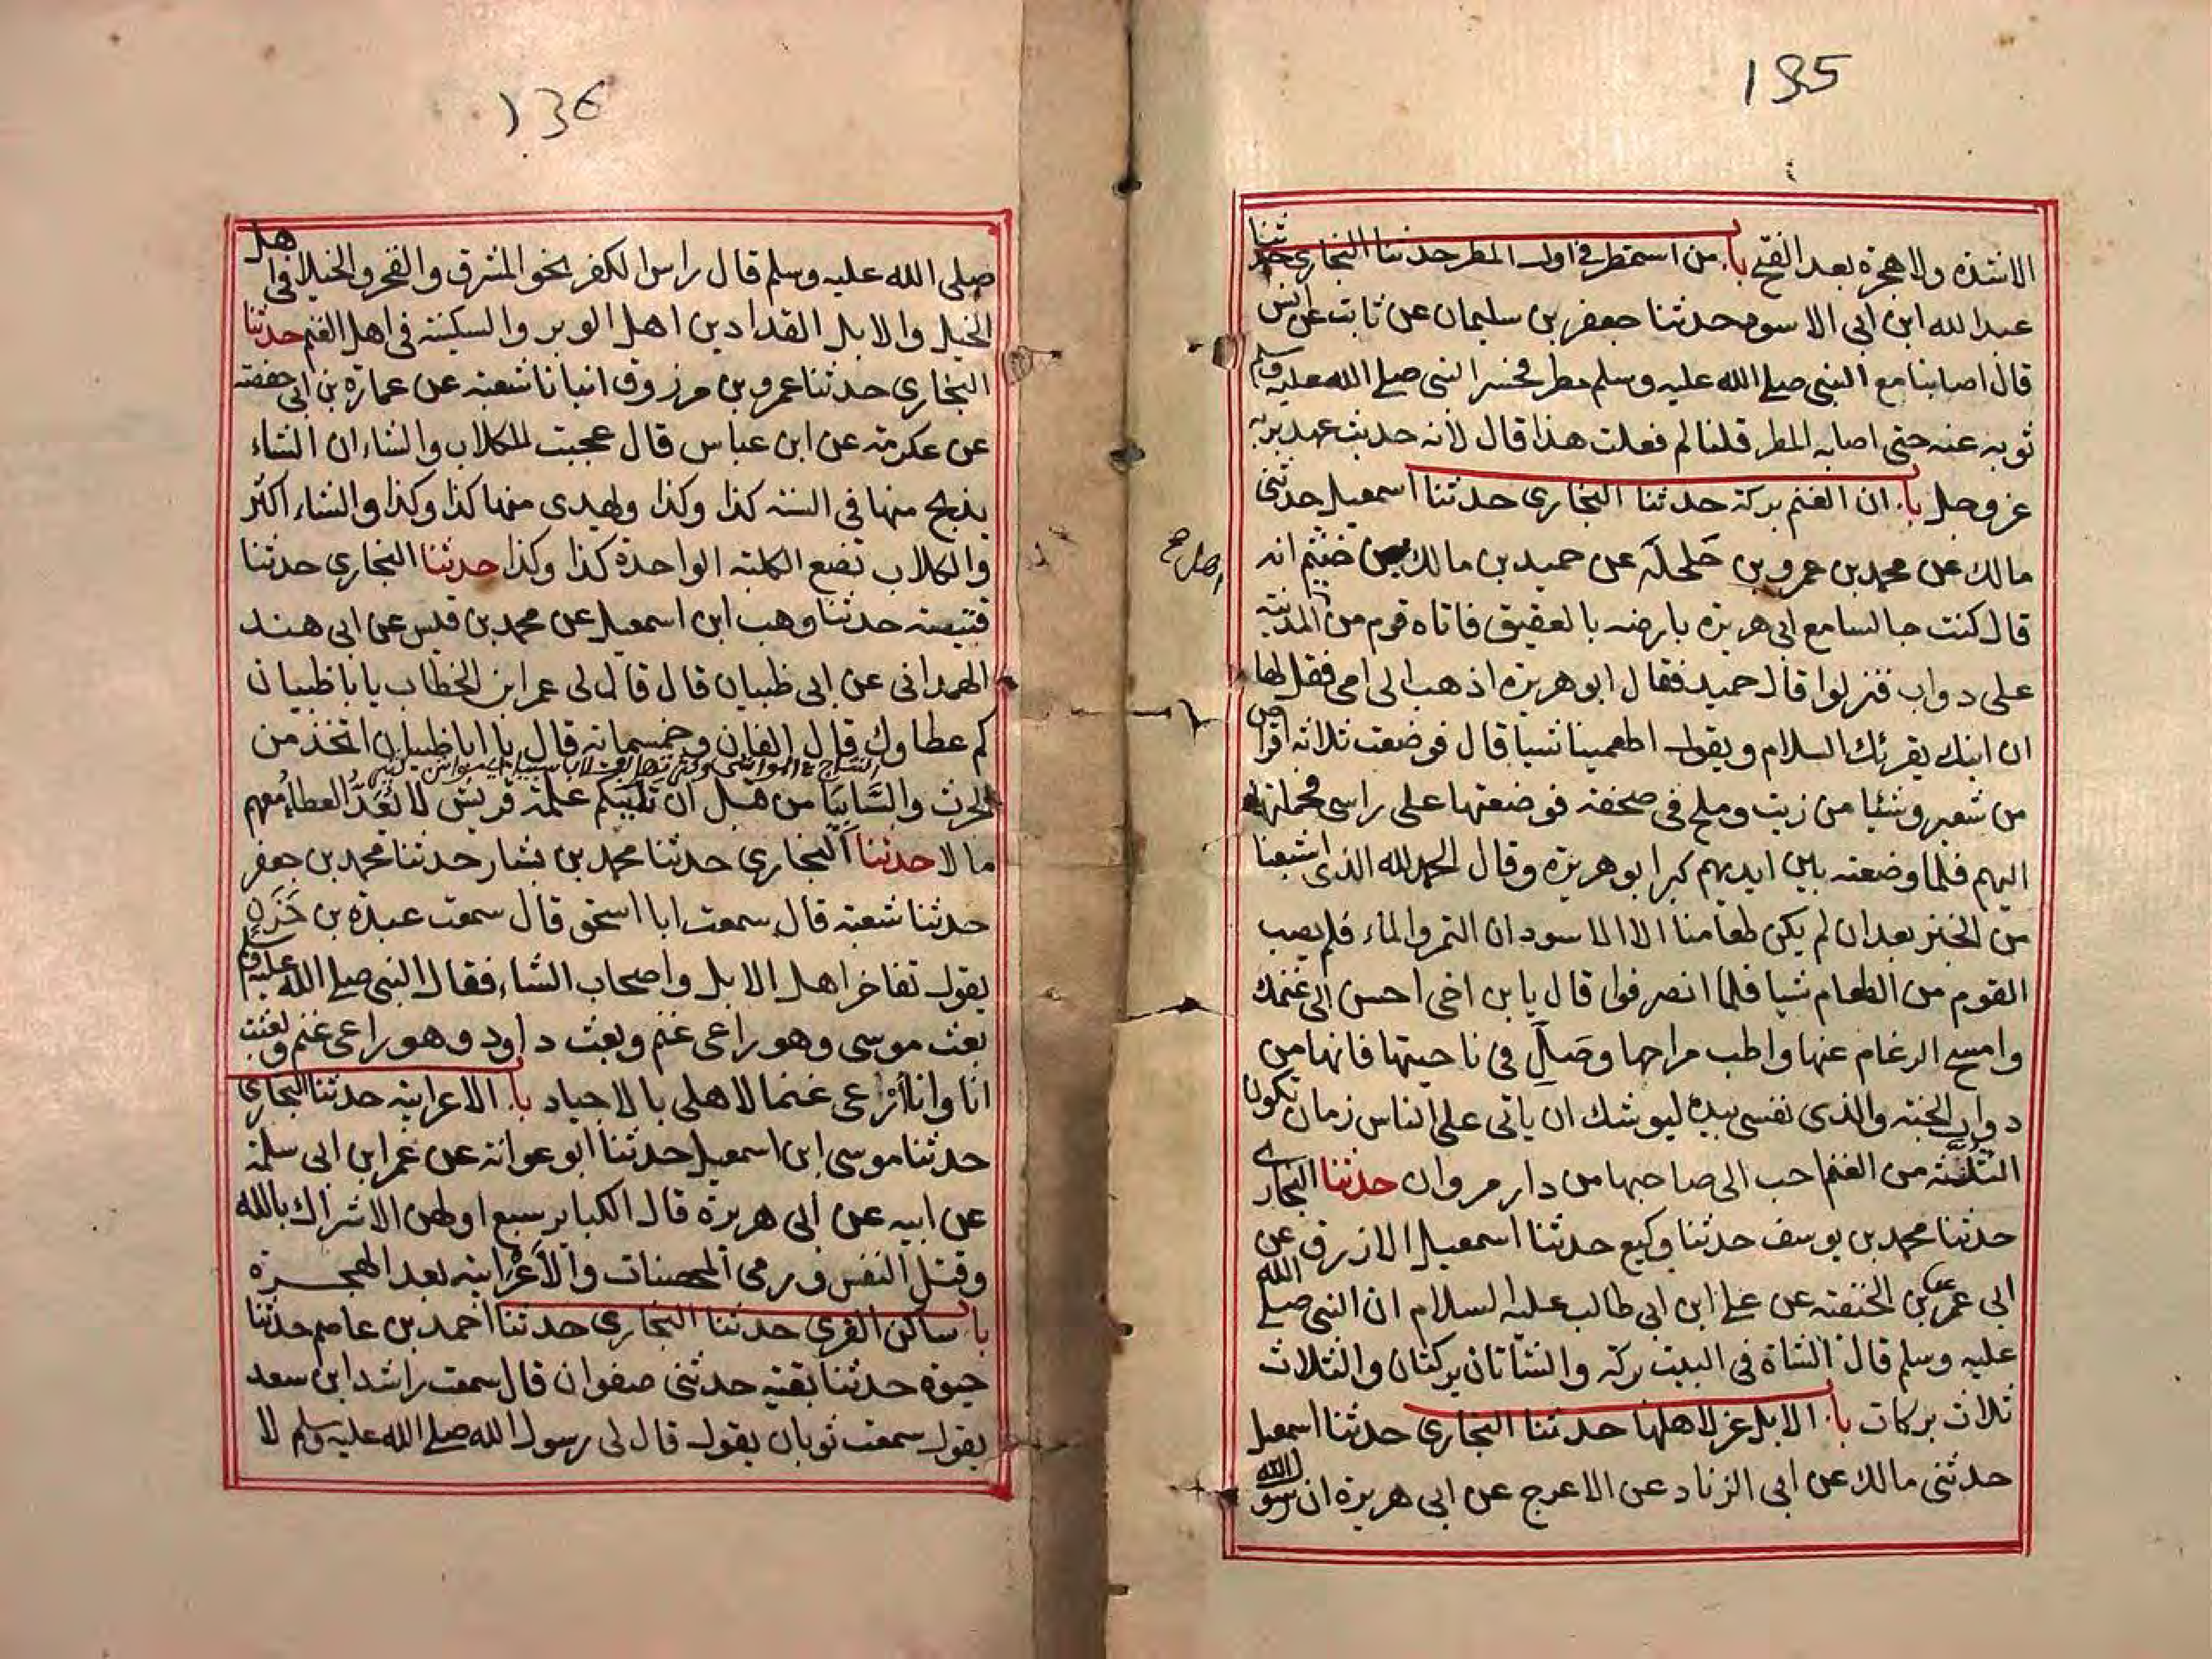 135
الاشدة ولا هجرة بعد الفتح باب من استمطر في اول المطر حدثنا البخارى حدثنا
عبد الله ابن ابى الاسود حدثنا جعفر بن سليمان عن ثابت عن انس
قال اصابنا مع النبى صلى الله عليه وسلم مطر فحسر النبى صلى الله عليه وسلم
ثوبه عنه حتى اصابه المطر قلنا لم فعلت هذا قال لانه حديث عهد بربه
عز وجل باب ان الغنم بركة حدثنا البخارى حدثنا اسمعيل حدثنى
مالك عن محمد بن عمرو بن حلحلة عن حميد بن مالك بن خثيم انه
قال كنت جالسا مع ابى هريرة بارضه بالعقيق فاتاه قوم من المدينة
على دواب فنزلوا قال حميد فقال ابو هريرة اذهب الى امى فقل لها
ان ابنك يقرئك السلام ويقول اطعمينا شيا قال فوضعت ثلاثة اقراص
من شعير وشئا من زيت وملح فى صحفة فوضعتها على راسى فحملتها
اليهم فلما وضعته بين ايديهم كبر ابو هريرة وقال الحمد لله الذى اشبعنا
من الخبز بعد ان لم يكن طعامنا الا الاسودان التمر والماء فلم يصب
القوم من الطعام شيا فلما انصرفوا قال يا بن اخى احسن الى غنمك
وامسح الرغام عنها واطب مراحها وصل فى ناحيتها فانها من
دواب الجنة والذى نفسى بيده ليوشك ان ياتى على الناس زمان تكون
الثلة من الغنم احب الى صاحبها من دار مروان حدثنا البخارى
حدثنا محمد بن يوسف حدثنا وكيع حدثنا اسمعيل الازرق عن
ابى عمر عن بن الحنفية عن على ابن ابى طالب عليه السلام ان النبى صلى الله
عليه وسلم قال الشاة فى البيت بركة والشاتان بركتان والثلاث
ثلاث بركات باب الابل عز لاهلها حدثنا البخارى حدثنا اسمعيل
حدثنى مالك عن ابى الزناد عن الاعرج عن ابى هريرة ان رسول الله
136
صلى الله عليه وسلم قال راس الكفر نحو المشرق والفخر والخيلا فى اهل
الخيل والابل الفدادين اهل الوبر والسكينة فى اهل الغنم حدثنا
البخارى حدثنا عمرو بن مرزوق انبانا شعبة عن عمارة بن ابى حفصة
عن عكرمة عن ابن عباس قال عجبت للكلاب والشاء ان الشاء
يذبح منها فى السنة كذا وكذا ويهدى منها كذا وكذا والشاء اكثر
والكلاب تضع الكلبة الواحدة كذا وكذا حدثنا البخارى حدثنا
قتيبة حدثنا وهب ابن اسمعيل عن محمد بن قيس عن ابى هند
الهمدانى عن ابى ظبيان قال قال لى عمر ابن الخطاب يا با ظبيان
كم عطاوك قال الفان وخمسمائة قال يا ابا ظبيان اتخذ من
الحرث والسابيا من قبل ان تليكم غلمة قريش لا تعد العطا معهم
مالا حدثنا البخارى حدثنا محمد بن بشار حدثنا محمد بن جعفر
حدثنا شعبة قال سمعت ابا اسحق قال سمعت عبدة بن حزن
يقول تفاخر اهل الابل واصحاب الشاء فقال النبى صلى الله عليه وسلم
بعث موسى وهو راعى غنم وبعث داود وهو راعى غنم وبعثت
انا وانا ارعى غنما لاهلى بالاجياد باب الاعرابية حدثنا البخارى
حدثنا موسى ابن اسمعيل حدثنا ابو عوانة عن عمر ابن ابى سلمة
عن ابيه عن ابى هريرة قال الكباير سبع اولهن الاشراك بالله
وقتل النفس ورمى المحصنات والاعرابية بعد الهجرة
باب ساكن القرى حدثنا البخارى حدثنا احمد بن عاصم حدثنا
حيوة حدثنا بقية حدثنى صفوان قال سمعت راشد ابن سعد
يقول سمعت ثوبان يقول قال لى رسول الله صلى الله عليه وسلم لا